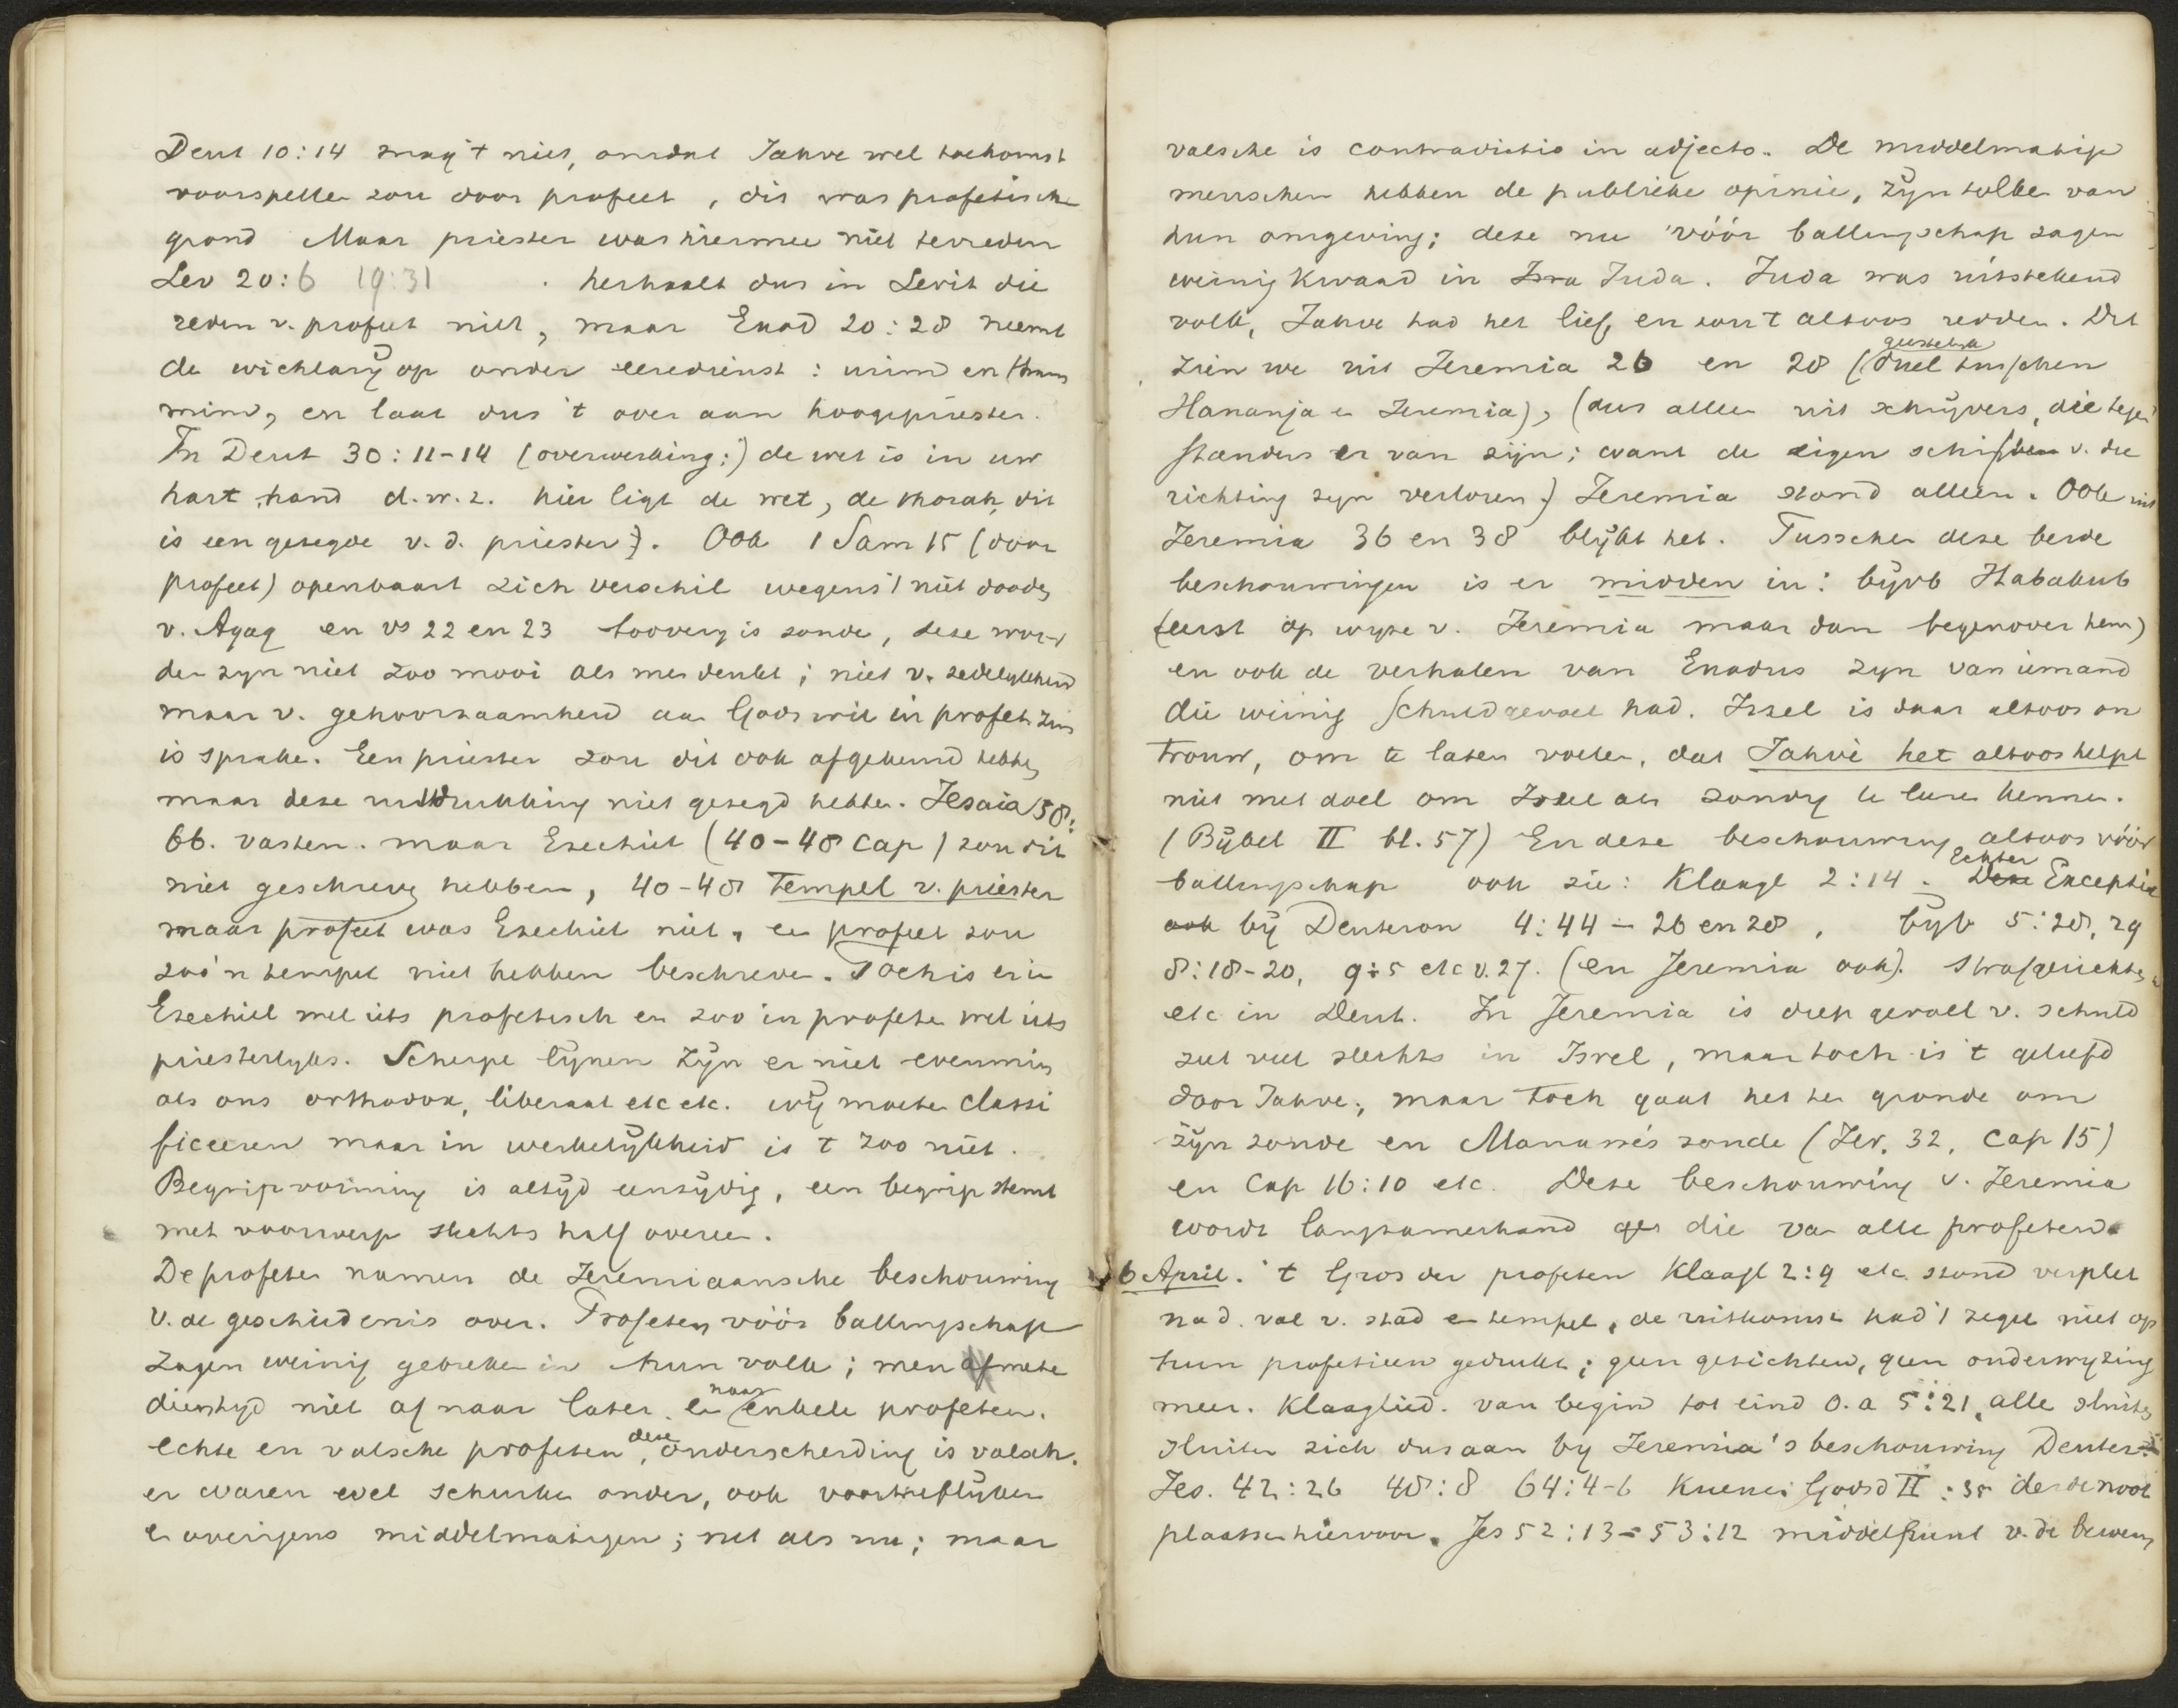 Deut 10:14 mag 't niet, omdat Jahve wel toekomst
voorspellen zou door profeet, dit was profetische
grond Maar priester was hiermee niet tevreden
Lev 20:6 19:31 herhaalt dus in Levit die
reden v. profeet niet, maar Exod 20:28 neemt
de wichlarij op onder eeredienst: urim en thum
mim, en laat dus 't over aan hoogepriester.
In Deut 30:11-14 (overwerking:) de wet is in uw
hart hand d.w.z. hier ligt de wet, de thorah, dit
is een gezegde v. d. priester). Ook 1 Sam 15 (door
profeet) openbaart zich verschil wegens 't niet dooden
v. Agag en vs 22 en 23 tooverij is zonde, deze woor-
den zijn niet zoo mooi als men denkt; niet v. zedelijkheid
maar v. gehoorzaamheid aan Gods wil in profet. zin
is sprake. Een priester zou dit ook afgekeurd hebben
maar deze uitdrukking niet gezegd hebben. Jesaia 58:
6b. vasten. maar Ezechiel (40-48 cap) zou dit
niet geschreven hebben, 40-48 tempel v. priester
maar profeet was Ezechiel niet, en profeet zou
zoo'n tempel niet hebben beschreven. Toch is er in
Ezechiel wel iets profetisch en zoo in profeten wel iets
priesterlijks. Scherpe lijnen zijn er niet evenmin
als ons orthodox, liberaal etc etc. wij moeten classi
ficeeren maar in werkelijkheid is 't zoo niet.
Begripvorming is altijd eenzijdig, een begrip stemt
met voorwerp slechts half overeen.
De profeten namen de Jeremiaansche beschouwing
v. de geschiedenis over. Profeten vóór ballingschap
zagen weinig gebreken in hun volk; men mete
dien tijd niet af naar later en naar enkele profeten.
echte en valsche profeten, deze onderscheiding is valsch.
er waren wel schurken onder, ook voortreflijken
en overigens middelmatigen; net als nu; maar
valsche is contradictio in adjecto. De middelmatige
menschen hebben de publieke opinie, zijn tolken van
hun omgeving; deze nu vóór ballingschap zagen
weinig kwaad in Isra Juda. Juda was uitstekend
volk, Jahve had het lief, en zou 't altoos redden. Dit
zien we uit Jeremia 26 en 28 (geestelijk duel tusschen
Hananja en Jeremia), (dus alleen uit schrijvers, die tegen
standers er van zijn; want de eigen schriften v. die
richting zijn verloren) Jeremia stond alleen. Ook uit
Jeremia 36 en 38 blijkt het. Tusschen deze beide
beschouwingen is er midden in: bijvb Habakuk
(eerst op wijze v. Jeremia maar dan tegenover hem)
en ook de verhalen van Exodus zijn van iemand
die weinig schuldgevoel had. Israel is daar altoos on
trouw, om te laten voelen, dat Jahve het altoos helpt
niet met doel om Israel als zondig te leeren kennen.
(Bijbel II bl. 57) En deze beschouwing altoos vóór
ballingschap ook zie: Klaagl 2:14. Deze Echter Exceptie
ook bij Deuteron 4:44 - 26 en 28, bijv 5:28, 29
8:18-20, 9:5 etc v. 27. (en Jeremia ook). Strafgerichten
etc in Deut. In Jeremia is diep gevoel v. schuld
ziet veel slechts in Israel, maar toch is 't geliefd
door Jahve; maar toch gaat het ten gronde om
zijn zonde en Manasse's zonde (Jer. 32, cap 15)
en cap 16:10 etc. Deze beschouwing v. Jeremia
wordt langzamerhand die van alle profeten.
6 April. 't Gros der profeten Klaagl 2:9 etc. stond verplet
na d. val v. stad en tempel, de uitkomst had 't zegel niet op
hun profetieen gedrukt; geen gezichten, geen onderwijzing
meer. Klaaglied. van begin tot eind o.a 5:21, alle sluiten
sluiten zich dus aan bij Jeremia's beschouwing Deuter.
Jes. 42:26 48:8 64:4-6 Kuenen Godsd II: 38 derde noot
plaatsen hiervoor. Jes 52:13-53:12 middelpunt v. de beweg